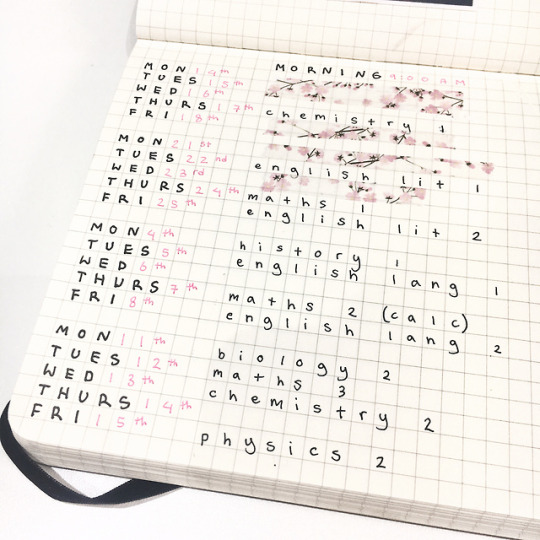 MORNING 9:00AM
MON 14th
TUES 15th
WED 16th
THURS 17th chemistry 1
FRI 18th
MON 21st
TUES 22nd english lit 1
WED 23rd
THURS 24th maths 1
FRI 25th english lit 2
MON 4th history 1
TUES 5th english lang 1
WED 6th
THURS 7th maths 2 (calc)
FRI 8th english lang 2
MON 11th biology 2
TUES 12th maths 3
WED 13th chemistry 2
THURS 14th
FRI 15th physics 2